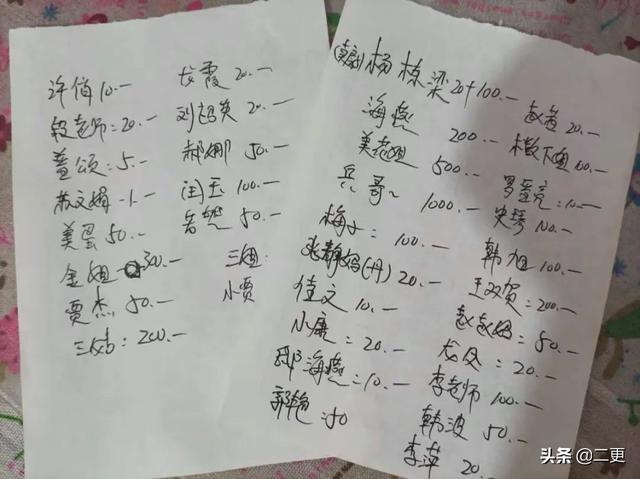 许俏 10.—
段老师:20.—
董颂:5.—
苏文娟 -1.—
美蛋 50.—
金姐 —300.—
贾杰 50.—
三妹:200.—
龙霞 20.—
刘超英 20.—
郝娜 50.—
闫玉 100.—
50.—
三姐:
小贾
杨栋梁 20+100.—
海燕 200.—
美老姐 500.—
兵哥~ 1000.—
梅子:100.—
张静妈(丹) 20.—
佳文 10.—
小康:20.—
邵海燕:10.—
郭艳:50
赵茜 20.—
树下鱼 100.—
罗蛋亮:10.—
史琴 100.—
韩旭 100.—
王双贺:200.—
赵赵妈:50.—
龙凤:20.—
李老师 100.—
韩波 50.—
李萍 20.—
头条 @二更